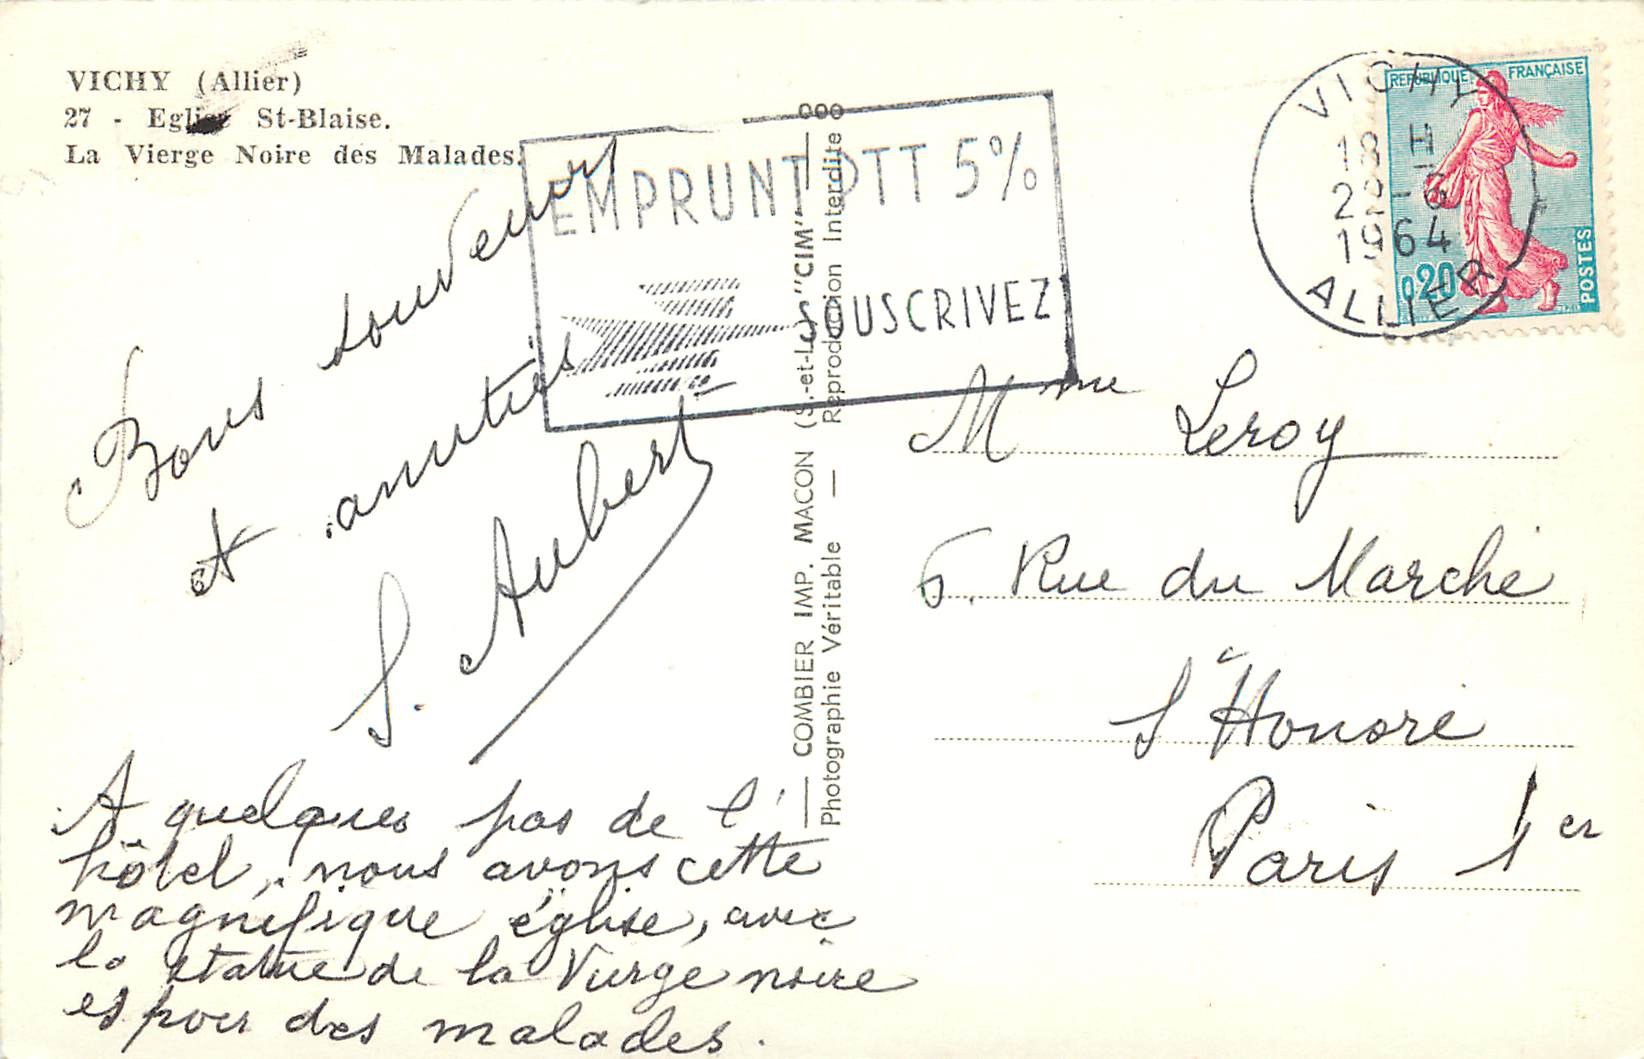 VICHY (Allier)
27 - Eglise St-Blaise.
La Vierge Noire des Malades.
Bons souvenirs
et amitiés
S. Aubert
A quelques pas de l'
hôtel, nous avons cette
magnifique église, avec
la statue de la Vierge noire
espoir des malades.
EMPRUNT PTT 5%
SOUSCRIVEZ
COMBIER IMP. MACON (S.-et-L.) "CIM"
Photographie Véritable — Reproduction Interdite
VICHY
18 H
1964
ALLIER
REPUBLIQUE FRANÇAISE
0,20
POSTES
Mme Leroy
6. Rue du Marché
St Honoré
Paris 1er